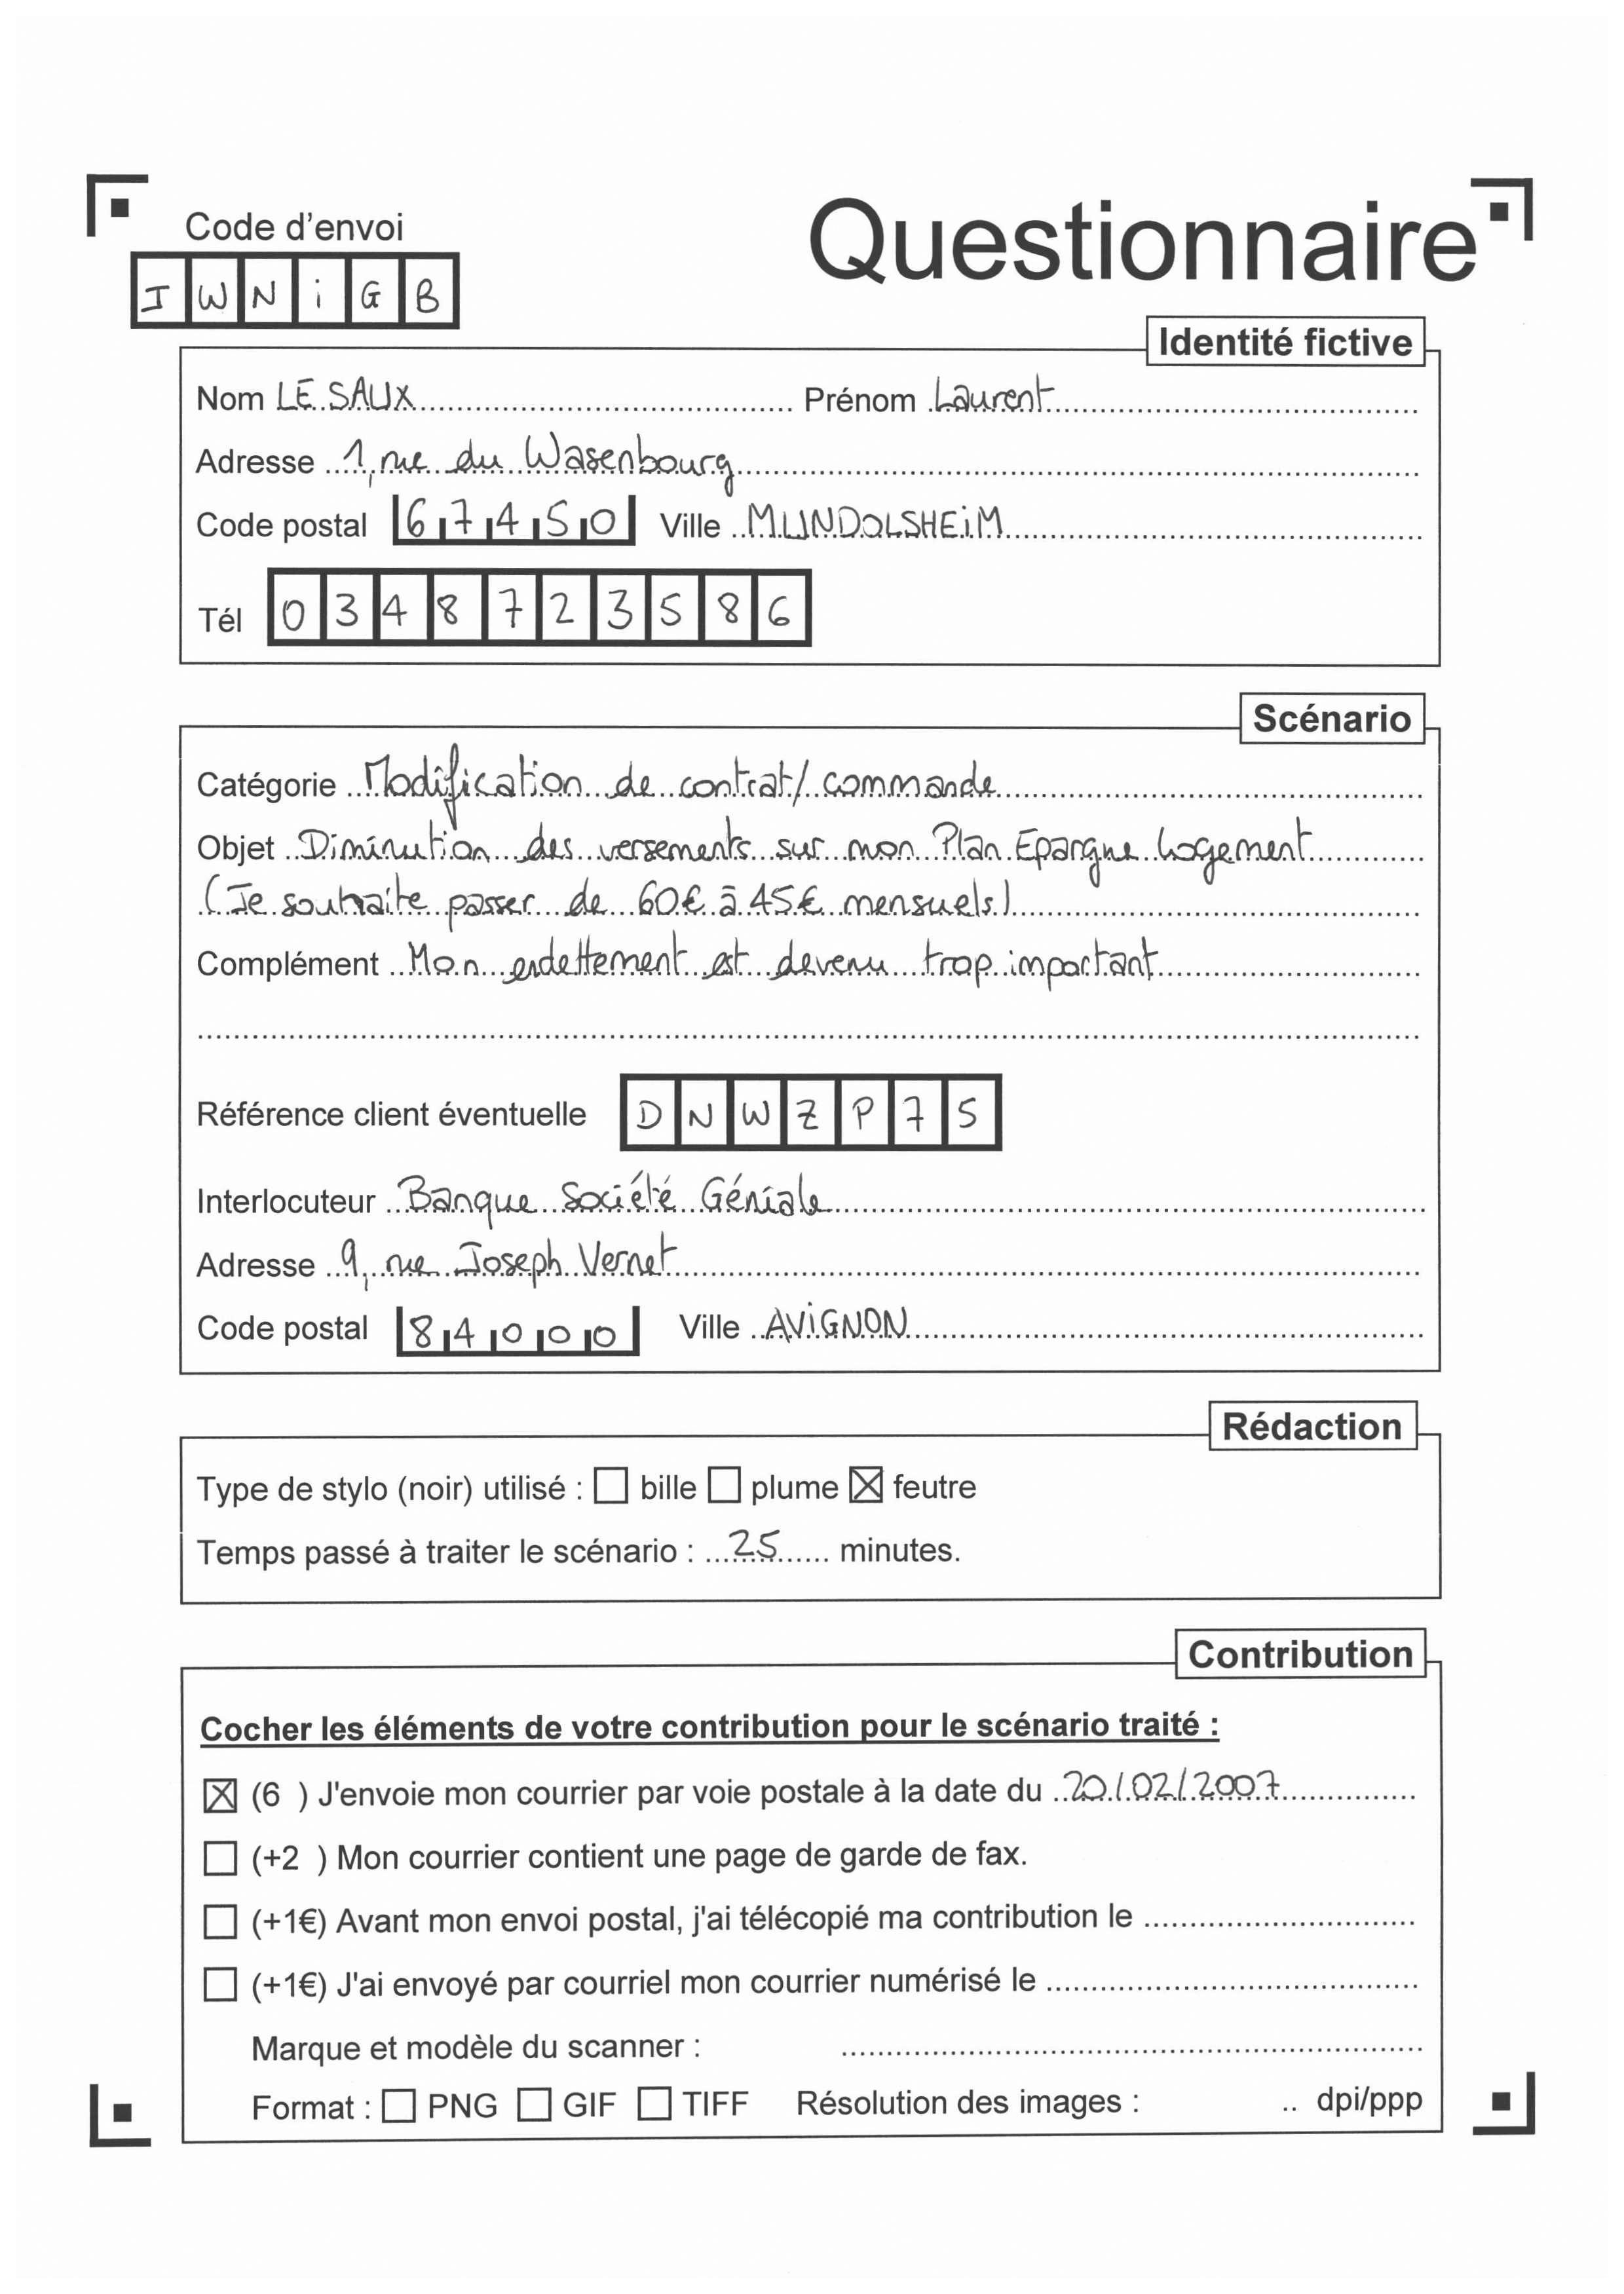 Code d'envoi
Questionnaire
J W N i G B
Identité fictive
Nom LE SAUX Prénom Laurent
Adresse 1, rue du Wasenbourg
Code postal 67450 Ville MUNDOLSHEiM
Tél 0348723586
Scénario
Catégorie Modification de contrat/commande
Objet Diminution des versements sur mon Plan Epargne Logement
(Je souhaite passer de 60€ à 45€ mensuels)
Complément Mon endettement est devenu trop important
Référence client éventuelle DNWZP75
Interlocuteur Banque Société Géniale
Adresse 9, rue Joseph Vernet
Code postal 84000 Ville AViGNON
Rédaction
Type de stylo (noir) utilisé : ☐ bille ☐ plume ☒ feutre
Temps passé à traiter le scénario : 25 minutes.
Contribution
Cocher les éléments de votre contribution pour le scénario traité :
☒ (6 ) J'envoie mon courrier par voie postale à la date du 20/02/2007
☐ (+2 ) Mon courrier contient une page de garde de fax.
☐ (+1€) Avant mon envoi postal, j'ai télécopié ma contribution le
☐ (+1€) J'ai envoyé par courriel mon courrier numérisé le
Marque et modèle du scanner :
Format : ☐ PNG ☐ GIF ☐ TIFF Résolution des images : .. dpi/ppp